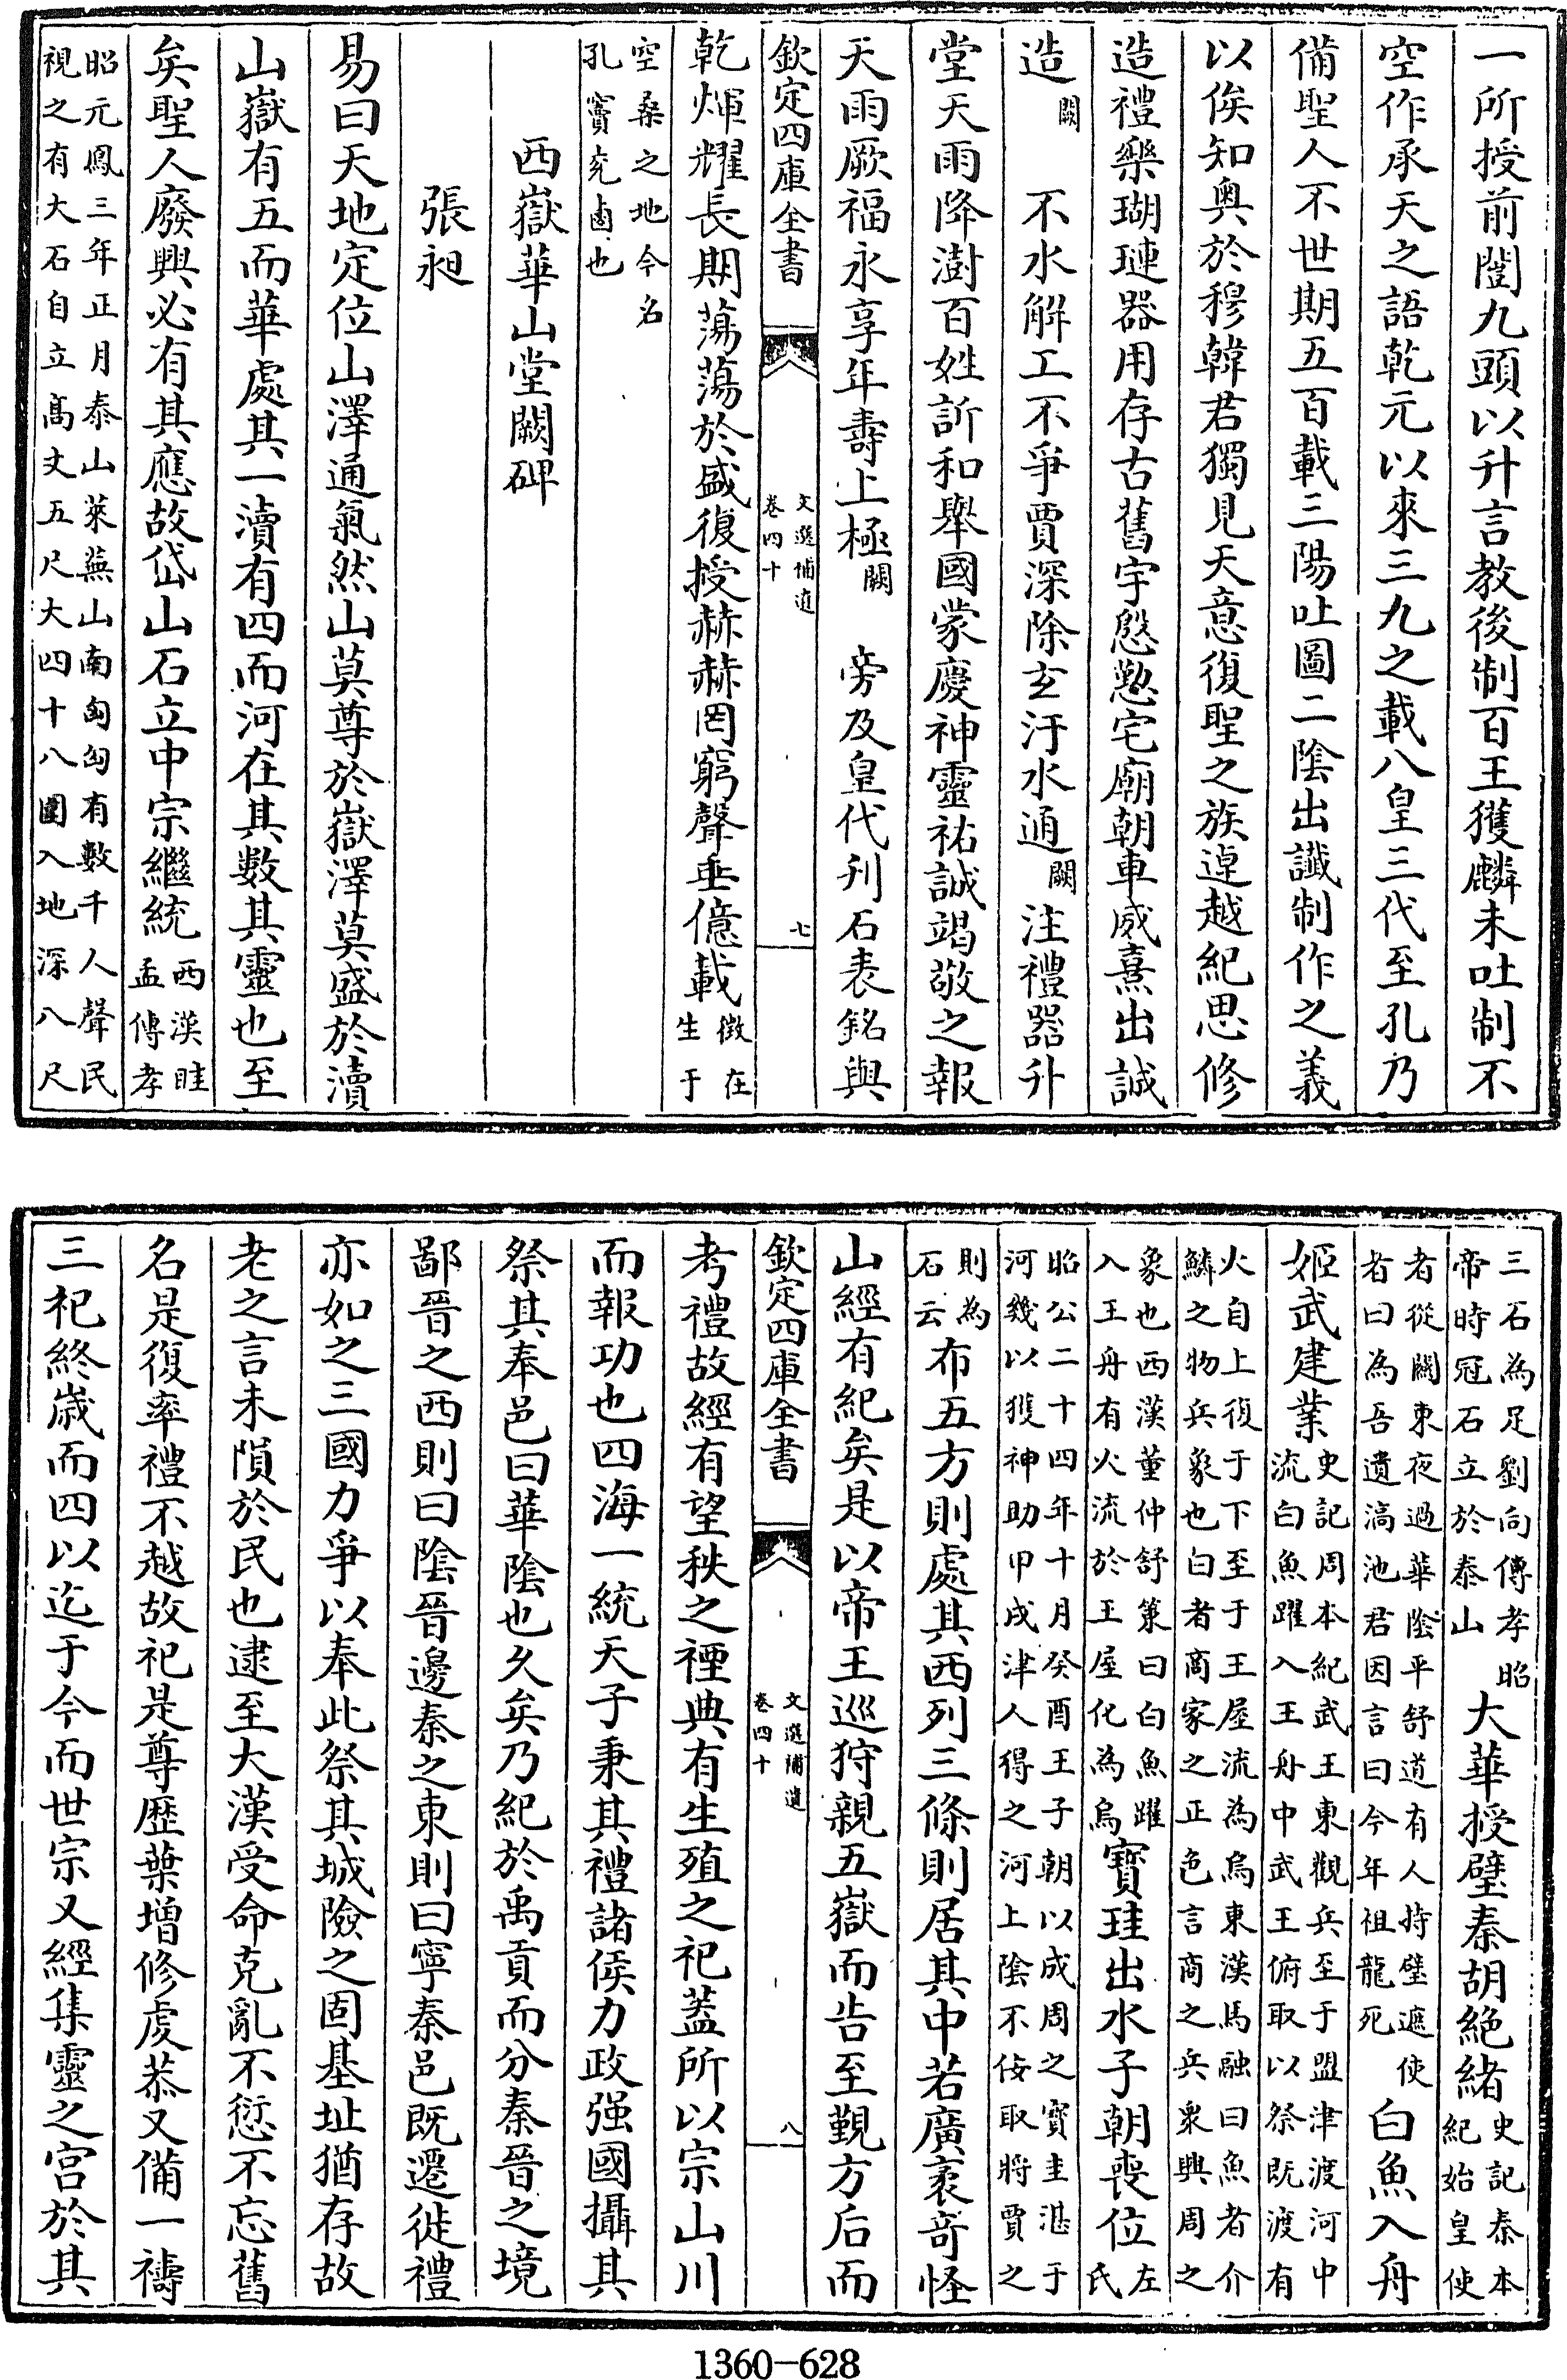 一所授前闓九頭以升言教後制百王獲麟未吐制不
空作承天之語乾元以來三九之載八皇三代至孔乃
備聖人不世期五百載三陽吐圖二陰出讖制作之義
以俟知奥於穆韓君獨見天意復聖之族逴越紀思修
造禮樂瑚璉器用存古舊宇慇懃宅廟朝車威熹出誠
造闕不水解工不爭賈深除玄汙水通闕注禮器升
堂天雨降澍百姓訢和舉國蒙慶神靈祐誠竭敬之報
天雨厥福永享年壽上極闕旁及皇代刋石表銘與
欽定四庫全書
文選補遺
卷四十
七
乾煇耀長期蕩蕩於盛復授赫赫罔窮聲垂億載徴在
生于
空桑之地今名
孔竇兖鹵也
西嶽華山堂闕碑
張昶
易曰天地定位山澤通氣然山莫尊於嶽澤莫盛於瀆
山嶽有五而華處其一瀆有四而河在其數其靈也至
矣聖人廢興必有其應故岱山石立中宗繼統西漢眭
孟傳孝
昭元鳳三年正月泰山萊蕪山南匈匈有數千人聲民
視之有大石自立高丈五尺大四十八圍入地深八尺
三石為足劉向傳孝昭
帝時冠石立於泰山
大華授璧秦胡絶緒史記秦本
紀始皇使
者從闗東夜過華陰平舒道有人持璧遮使
者曰為吾遺滈池君因言曰今年祖龍死
白魚入舟
姬武建業史記周本紀武王東觀兵至于盟津渡河中
流白魚躍入王舟中武王俯取以祭既渡有
火自上復于下至于王屋流為烏東漢馬融曰魚者介
鱗之物兵象也白者商家之正色言商之兵衆興周之
象也西漢董仲舒策曰白魚躍
入王舟有火流於王屋化為烏
寳珪出水子朝喪位左
氏
昭公二十四年十月癸酉王子朝以成周之寳圭湛于
河幾以獲神助甲戌津人得之河上陰不佞取將賈之
則為
石云
布五方則處其西列三條則居其中若廣袤竒怪
山經有紀矣是以帝王巡狩親五嶽而告至覲方后而
欽定四庫全書
文選補遺
卷四十
八
考禮故經有望秩之禋典有生殖之祀蓋所以宗山川
而報功也四海一統天子秉其禮諸侯力政强國攝其
祭其奉邑曰華陰也乆矣乃紀於禹貢而分秦晉之境
鄙晉之西則曰陰晉邊秦之東則曰寧秦邑既遷徙禮
亦如之三國力爭以奉此祭其城險之固基址猶存故
老之言未隕於民也逮至大漢受命克亂不愆不忘舊
名是復率禮不越故祀是尊歴葉増修虔恭又備一禱
三祀終歳而四以迄于今而世宗又經集靈之宫於其
1360-628